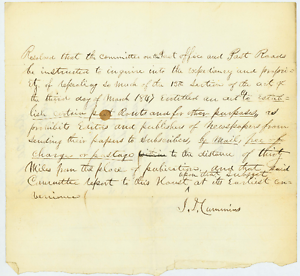 Resolved that the committee on Post office and Post Roads
be instructed to enquire into the expediency and propri-
ety of repealing so much of the 13th Section of the act of
the third day of March 1847 entitled an act to estab-
lish certain post Routs and for other purposes, as
prohibits Editors and publishers of Newspapers from
sending their papers to Subscribers, by Mail, free of
charge or postage to the distance of thirty
Miles from the place of publication, and that said
Committee report to this House upon that subject at the Earliest con-
venience
J. D. Cummins